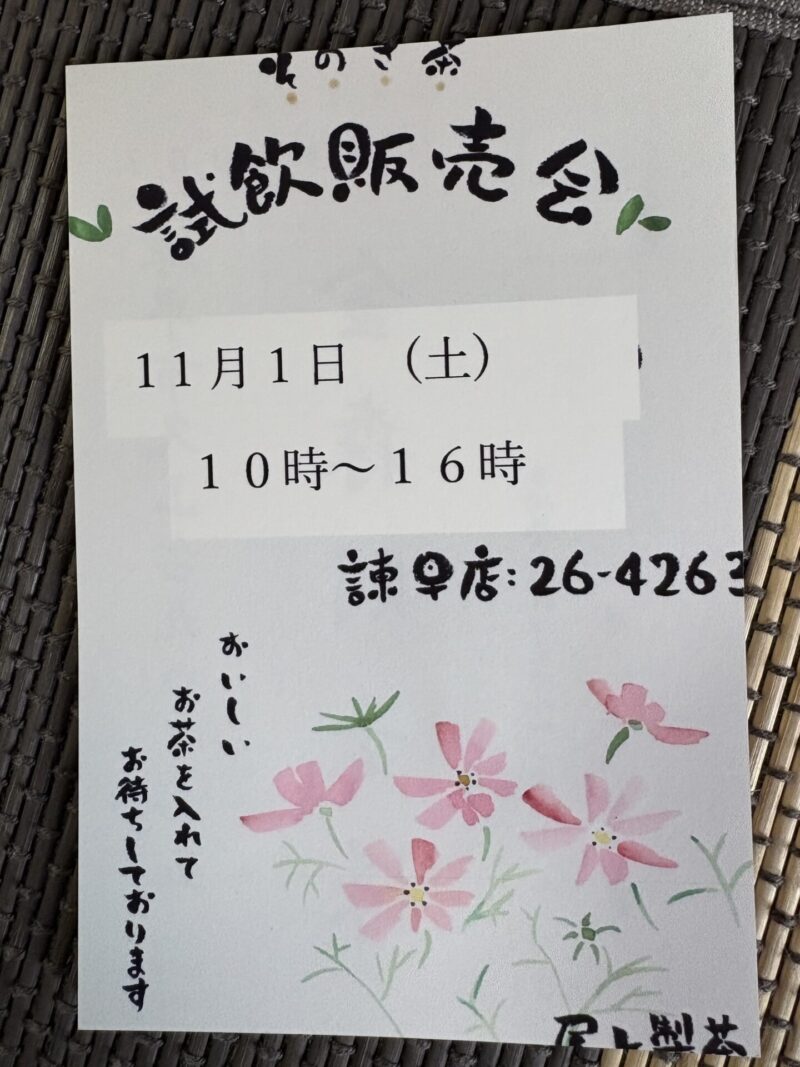 そのぎ茶
試飲販売会
11月1日 (土)
10時～16時
諫早店:26-4263
おいしい
お茶を入れて
お待ちしております
尾上製茶